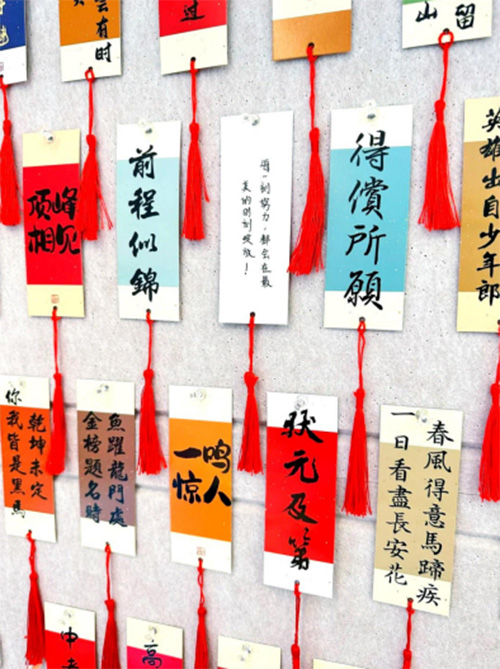 雲有时
过
留
山
顶峰
相见
前程似錦
每一刻努力，都会在最
美的时刻绽放！
得償所願
英雄出自少年郎
乾坤未定
你我皆是黑馬
魚躍龍門處
金榜題名時
一鸣
惊人
狀元及第
春風得意馬蹄疾
一日看盡長安花
中
高